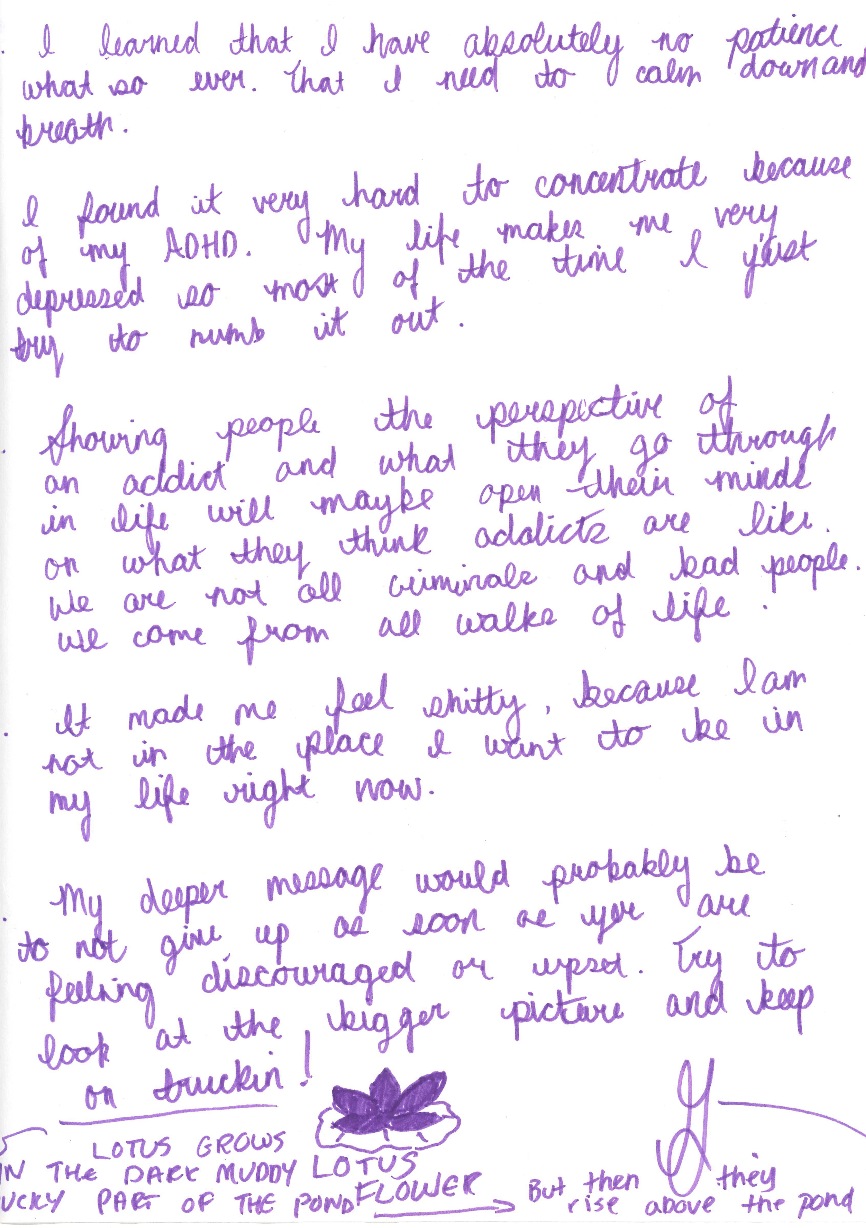 . I learned that I have absolutely no patience
what so ever. That I need to calm down and
breath.
I found it very hard to concentrate because
of my ADHD. My life makes me very
depressed so most of the time I just
try to numb it out.
. Showing people the perspective of
an addict and what they go through
in life will maybe open their minds
on what they think addicts are like.
We are not all criminals and bad people.
we come from all walks of life.
. It made me feel shitty, because I am
not in the place I want to be in
my life right now.
. My deeper message would probably be
to not give up as soon as you are
feeling discouraged or upset. Try to
look at the bigger picture and keep
on truckin!
LOTUS GROWS
IN THE DARK MUDDY
UCKY PART OF THE POND
LOTUS
FLOWER
But then they
rise above the pond